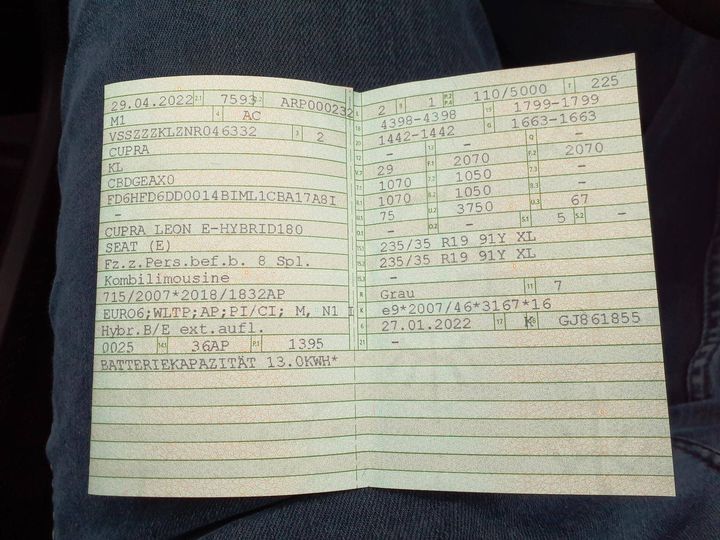 29.04.2022 2.1 7593 2.2 ARP000232
M1 4 AC
VSSZZZKLZNR046332 3 2
CUPRA
KL
CBDGEAX0
FD6HFD6DD0014BIML1CBA17A8I
-
CUPRA LEON E-HYBRID180
SEAT (E)
Fz.z.Pers.bef.b. 8 Spl.
Kombilimousine
715/2007*2018/1832AP
EURO6;WLTP;AP;PI/CI; M, N1 I
Hybr.B/E ext.aufl.
0025 14.1 36AP P.1 1395
BATTERIEKAPAZITÄT 13.0KWH*
2 9 1 P.2 P.4 110/5000 T 225
18 4398-4398 19 1799-1799
20 1442-1442 G 1663-1663
12 - 13 - Q -
V.7 29 F.1 2070 F.2 2070
7.1 1070 7.2 1050 7.3 -
8.1 1070 8.2 1050 8.3 -
U.1 75 U.2 3750 U.3 67
O.1 - O.2 - S.1 5 S.2 -
15.1 235/35 R19 91Y XL
15.2 235/35 R19 91Y XL
15.3 -
R Grau 11 7
K e9*2007/46*3167*16
6 27.01.2022 17 K 16 GJ861855
21 -